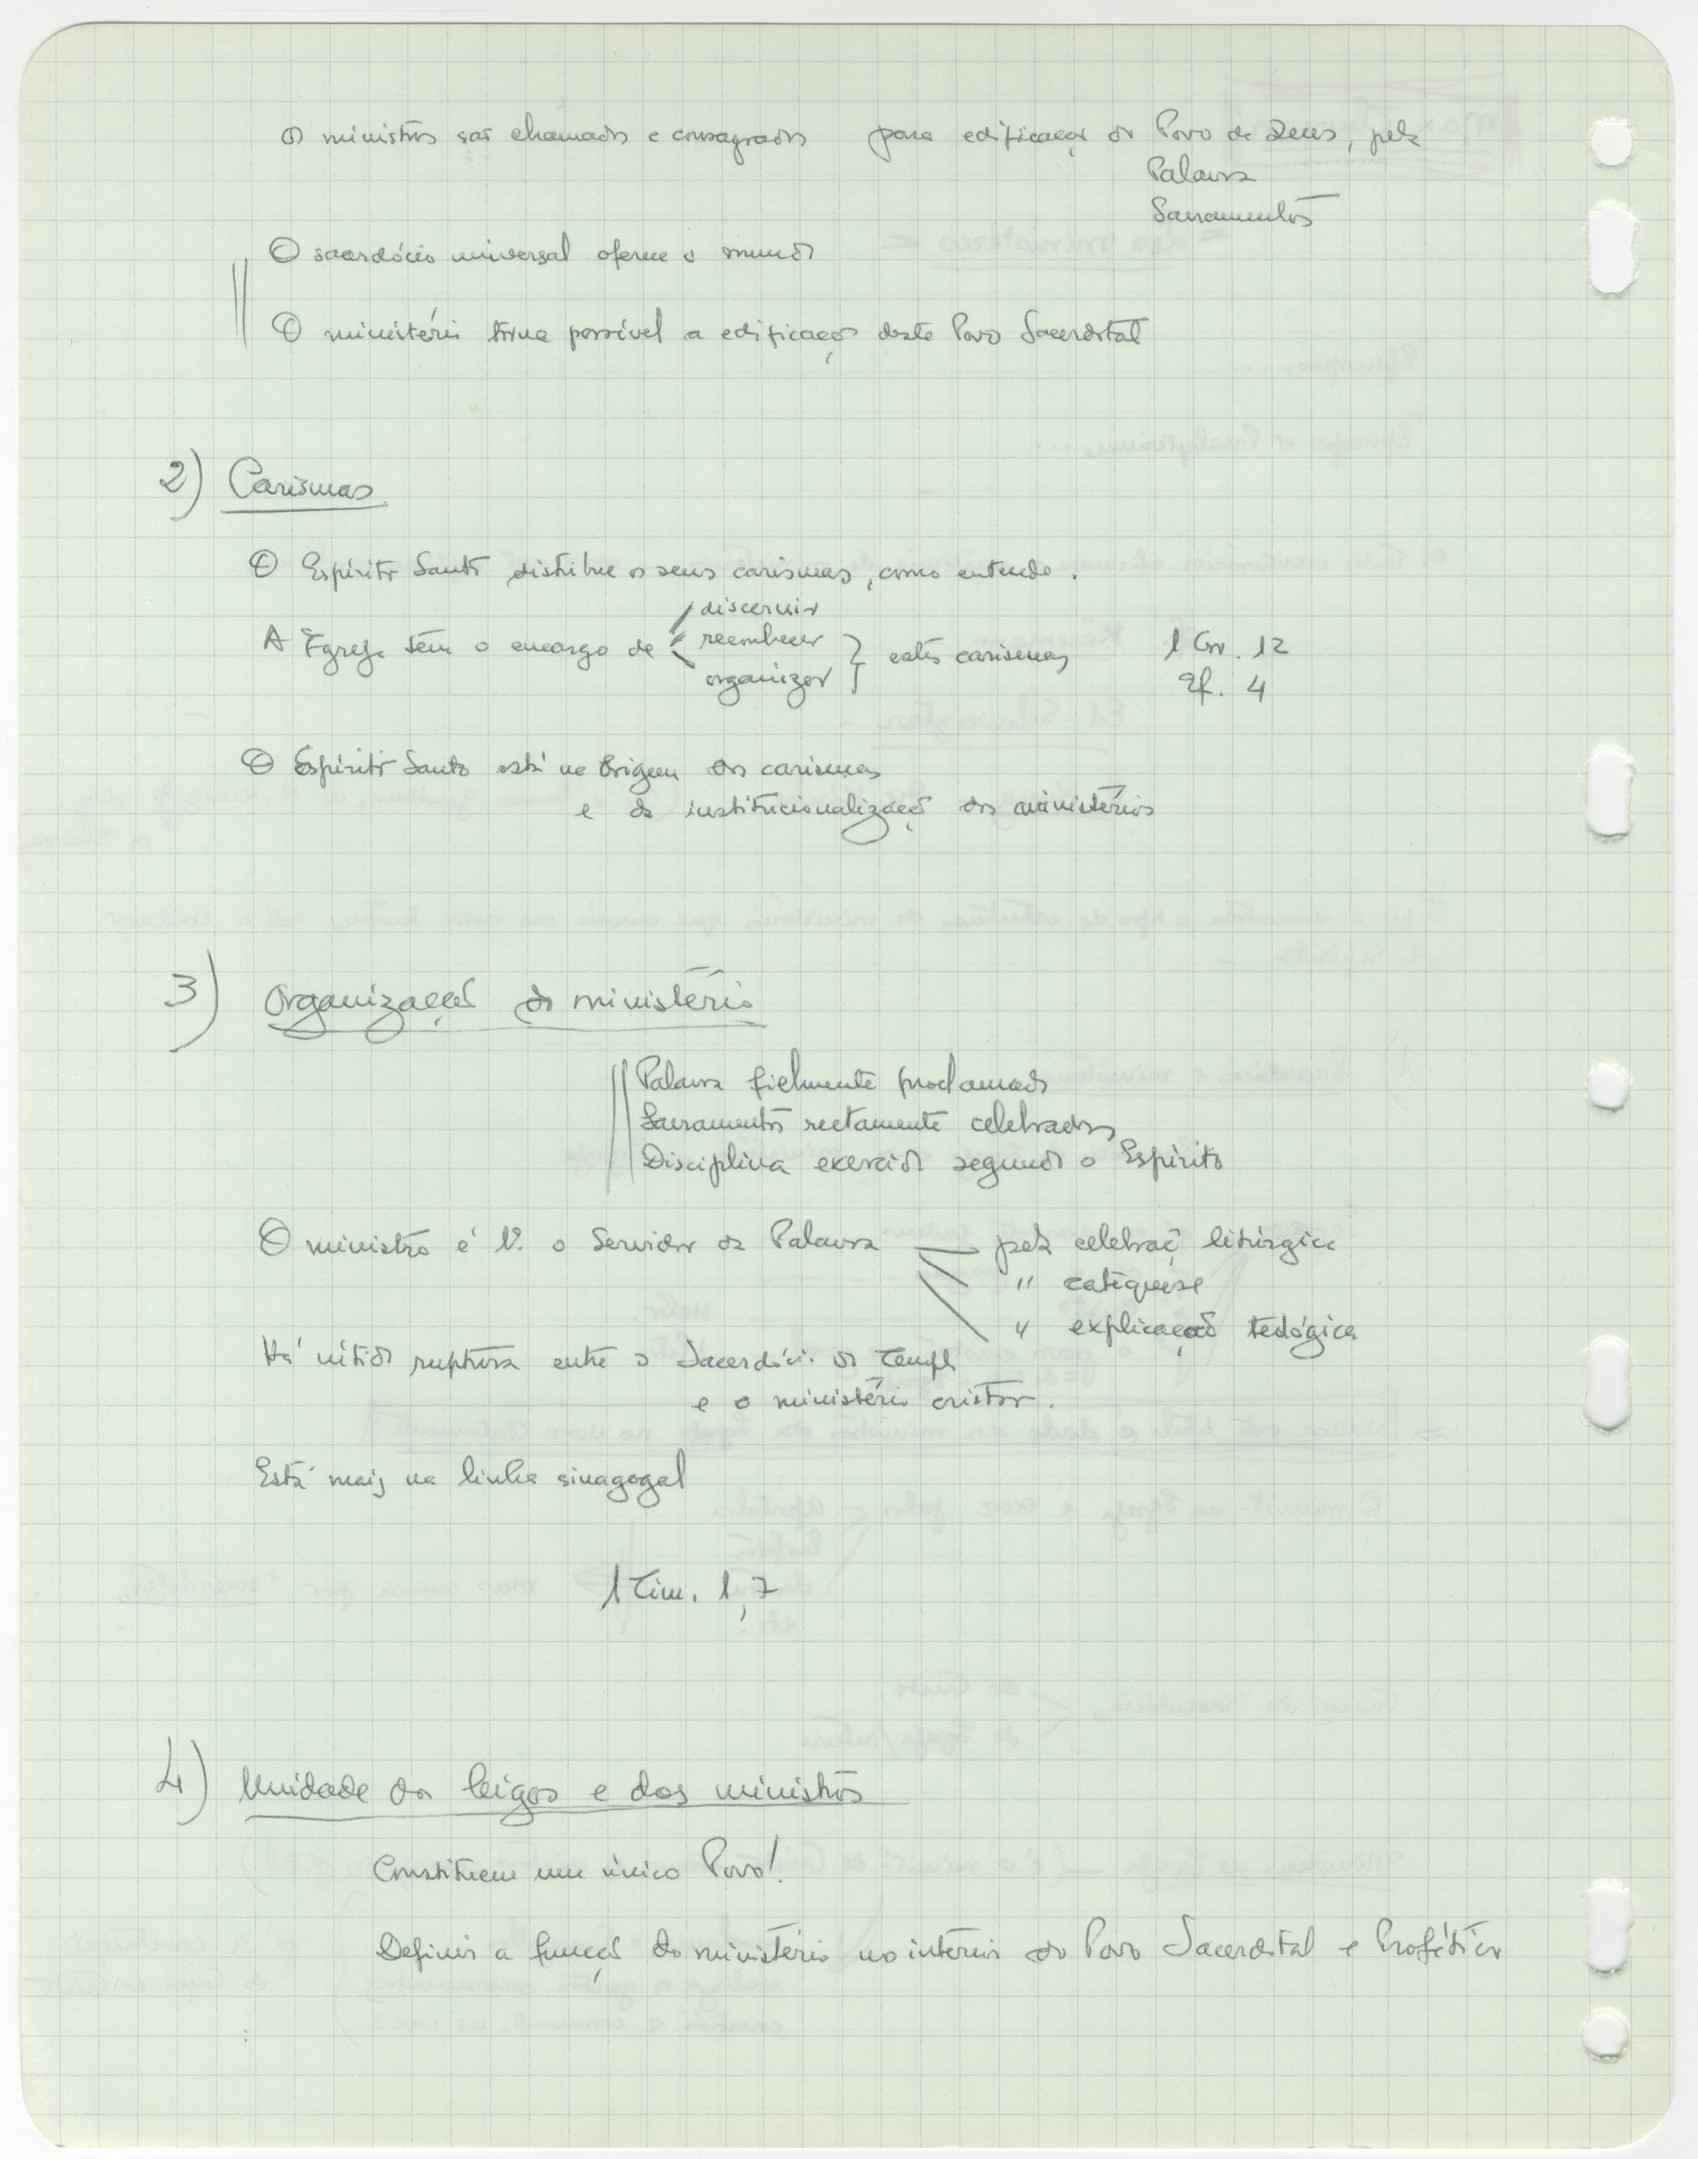 Os ministros são chamados e consagrados para edificação do Povo de Deus, pela
Palavra
Sacramentos
O sacerdócio universal oferece o mundo
O ministério torna possível a edificação deste Povo Sacerdotal
2) Carismas
O Espírito Santo distribue os seus carismas, como entende.
discernir
A Igreja tem o encargo de reconhecer estes carismas 1 Cor. 12
organizar Ef. 4
O Espírito Santo está na origem dos carismas
e da institucionalização dos ministérios
3) Organização do ministério
Palavra fielmente proclamada
Sacramentos rectamente celebrados
Disciplina exercida segundo o Espírito
O ministro é 1º o Servidor da Palavra — pela celebração litúrgica
" catequese
" explicação teológica
Há nítida ruptura entre o Sacerdócio do Templo
e o ministério cristão.
Está mais na linha sinagogal
1 Tim. 1,7
4) Unidade dos leigos e dos ministros
Constituem um único Povo!
Definir a função do ministério no interior do Povo Sacerdotal e Profético